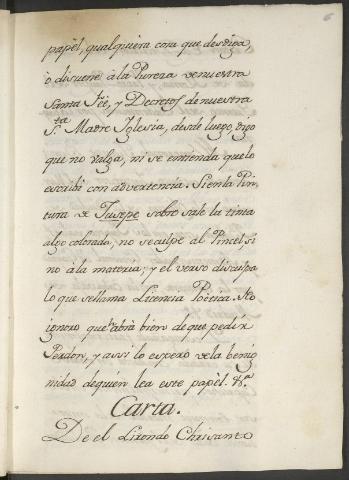 6
papèl, qualquiera cosa que desdiga,
ò disuene à la Pureza de nuestra
Santa Feè, y Decretos de nuestra
S.ta Madre Iglesia, desde luego, digo
que no valga, ni se entienda que lo
escribi con advertencia. Si en la Pin-
tura de Jusepe, sobre sale la tinta
algo colorada, no se culpe al Pincel si
no à la materia; y el verso disculpa
lo que se llama Licencia Poètica. No
ignoro que abrà bien de que pedir
Perdon, y assi lo espero de la benig
nidad de quien lea este papèl. &.a
Carta.
De el Lirondo Chrisanto